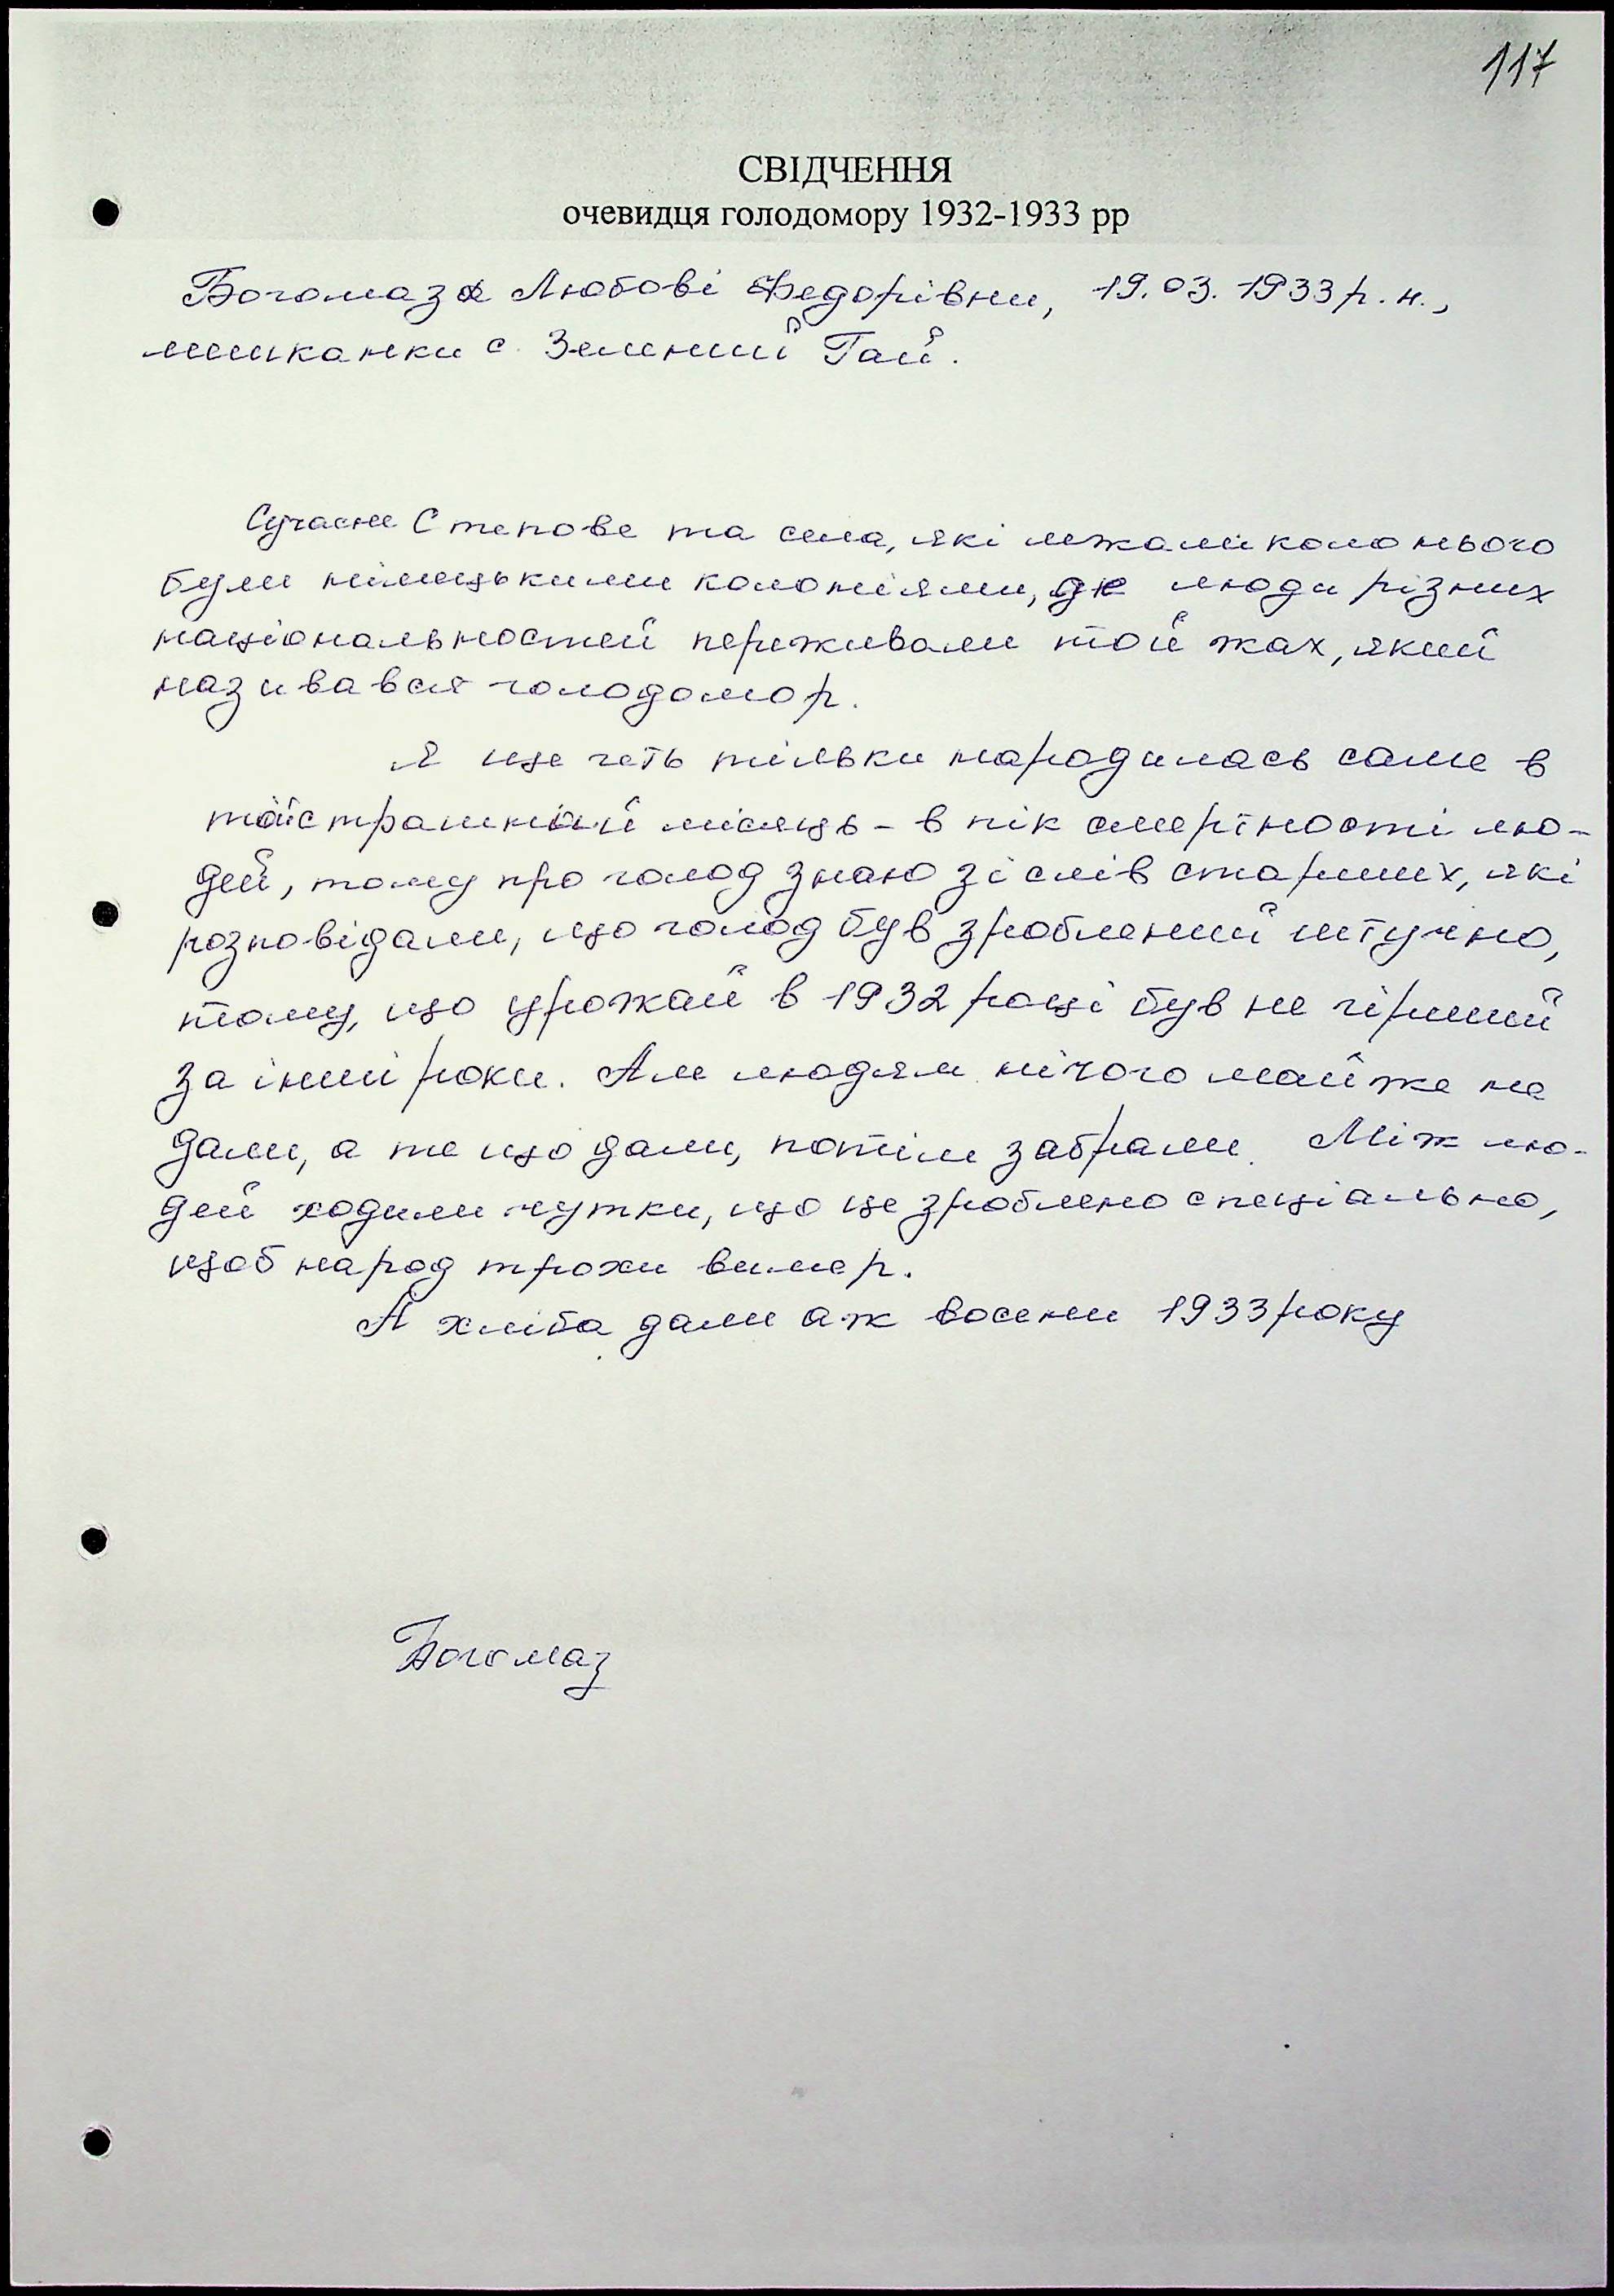 117
СВІДЧЕННЯ
очевидця голодомору 1932-1933 рр
Богомаз Любові Федорівни, 19.03.1933 р.н.,
мешканки с. Зелений Гай.
Сучасне Степове та села, які лежали коло нього
були німецькими колоніями, де люди різних
національностей переживали той жах, який
називався голодомор.
Я ще геть тільки народилась саме в
той страшний місяць - в пік смертності лю-
дей, тому про голод знаю зі слів старших, які
розповідали, що голод був зроблений штучно,
тому, що урожай в 1932 році був не гірший
за інші роки. Але людям нічого майже не
дали, а те що дали, потім забрали. Між лю-
дей ходили чутки, що це зроблено спеціально,
щоб народ трохи вимер.
А хліба дали аж восени 1933 року
Богомаз